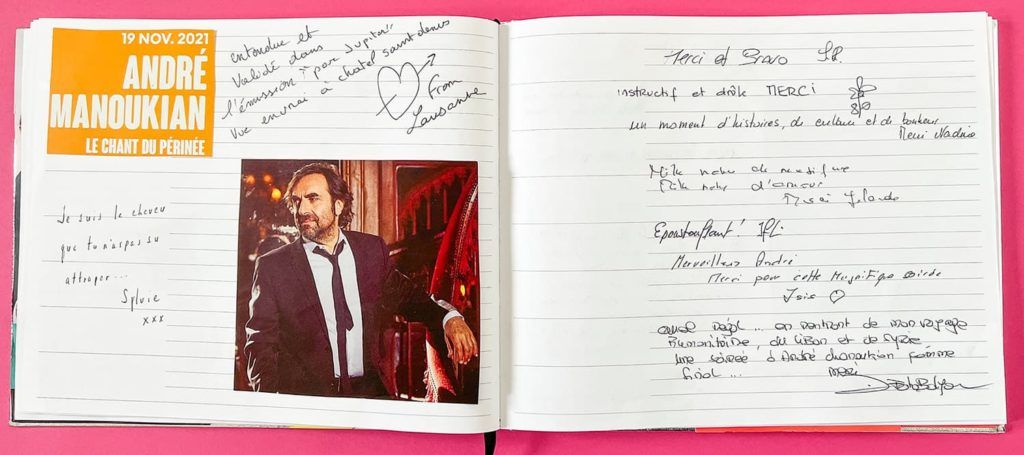 19 NOV. 2021
ANDRÉ
MANOUKIAN
LE CHANT DU PÉRINÉE
entendue et
validée dans
l'émission "par Jupiter"
Vue en vrai à chatel saint denis
From
Lausanne
Je suis le cheveu
que tu n'as pas su
attraper...
Sylvie
xxx
Merci et Bravo
instructif et drôle MERCI
un moment d'histoires, de culture et de bonheur
Merci Nadine
Mille notes de musique
Mille notes d'amour
Merci Yolande
Epoustouflant!
Merveilleux André
Merci pour cette Magnifique soirée
Isis
quel régal... en rentrant de mon voyage
humanitaire, du Liban et de Syrie
une soirée d'André Manoukian comme
final... merci